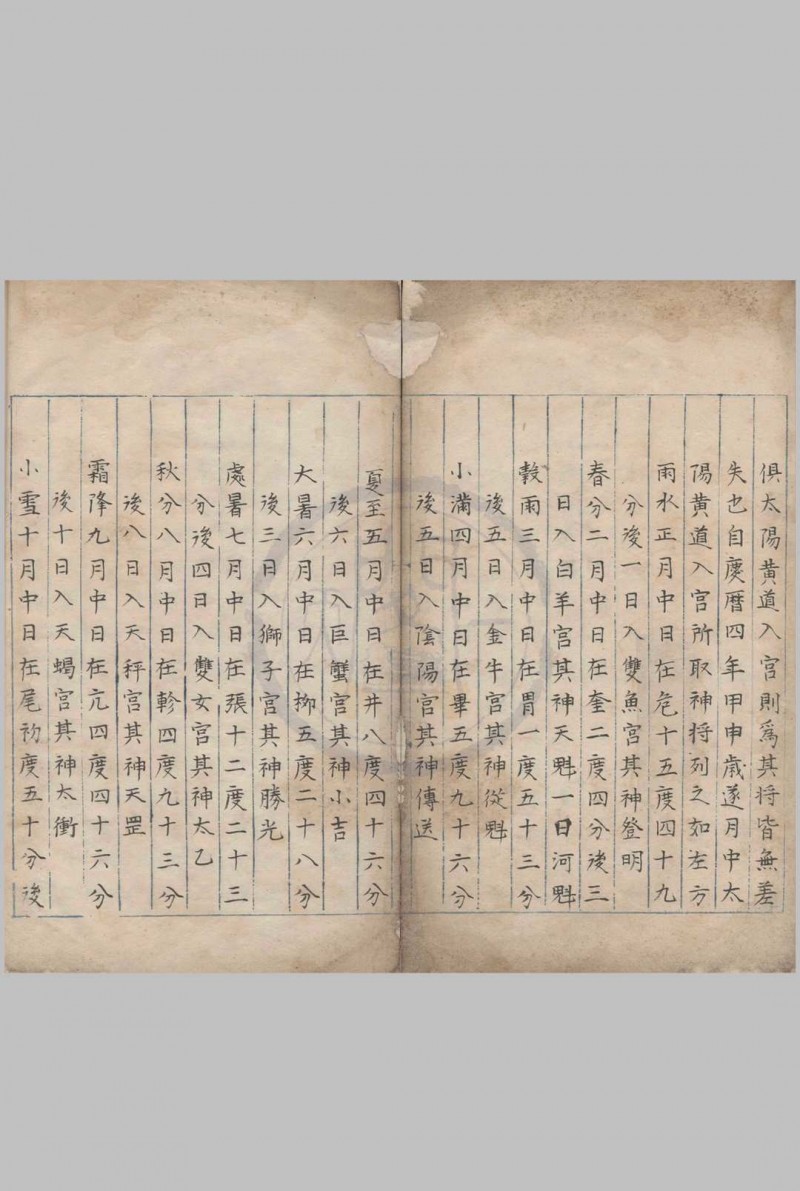 俱太陽黄道入宫則爲其将皆無差
失也自慶曆四年甲申歲遂月中太
陽黄道入宫所取神将列之如左方
雨水正月中日在危十五度四十九
分後一日入雙魚宫其神登明
春分二月中日在奎二度四分後三
日入白羊宫其神天魁一曰河魁
穀雨三月中日在胃一度五十三分
後五日入金牛宫其神從魁
小滿四月中日在畢五度九十六分
後五日入隂陽宫其神傳送
夏至五月中日在井八度四十六分
後六日入巨蟹宫其神小吉
大暑六月中日在柳五度二十八分
後三日入獅子宫其神勝光
處暑七月中日在張十二度二十三
分後四日入雙女宫其神太乙
秋分八月中日在軫四度九十三分
後八日入天秤宫其神天罡
霜降九月中日在亢四度四十六分
後十日入天蝎宫其神太衝
小雪十月中日在尾初度五十分後